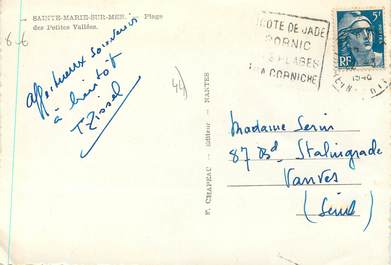 SAINTE-MARIE-SUR-MER. — Plage
des Petites Vallées.
6-6
Affectueux souvenir
à bientôt
44
F. CHAPEAU — Editeur — NANTES
COTE DE JADE
PORNIC
PLAGES
LA CORNICHE
5F
RF
Madame Serin
87 Bd Stalingrade
Vanves
(Seine)